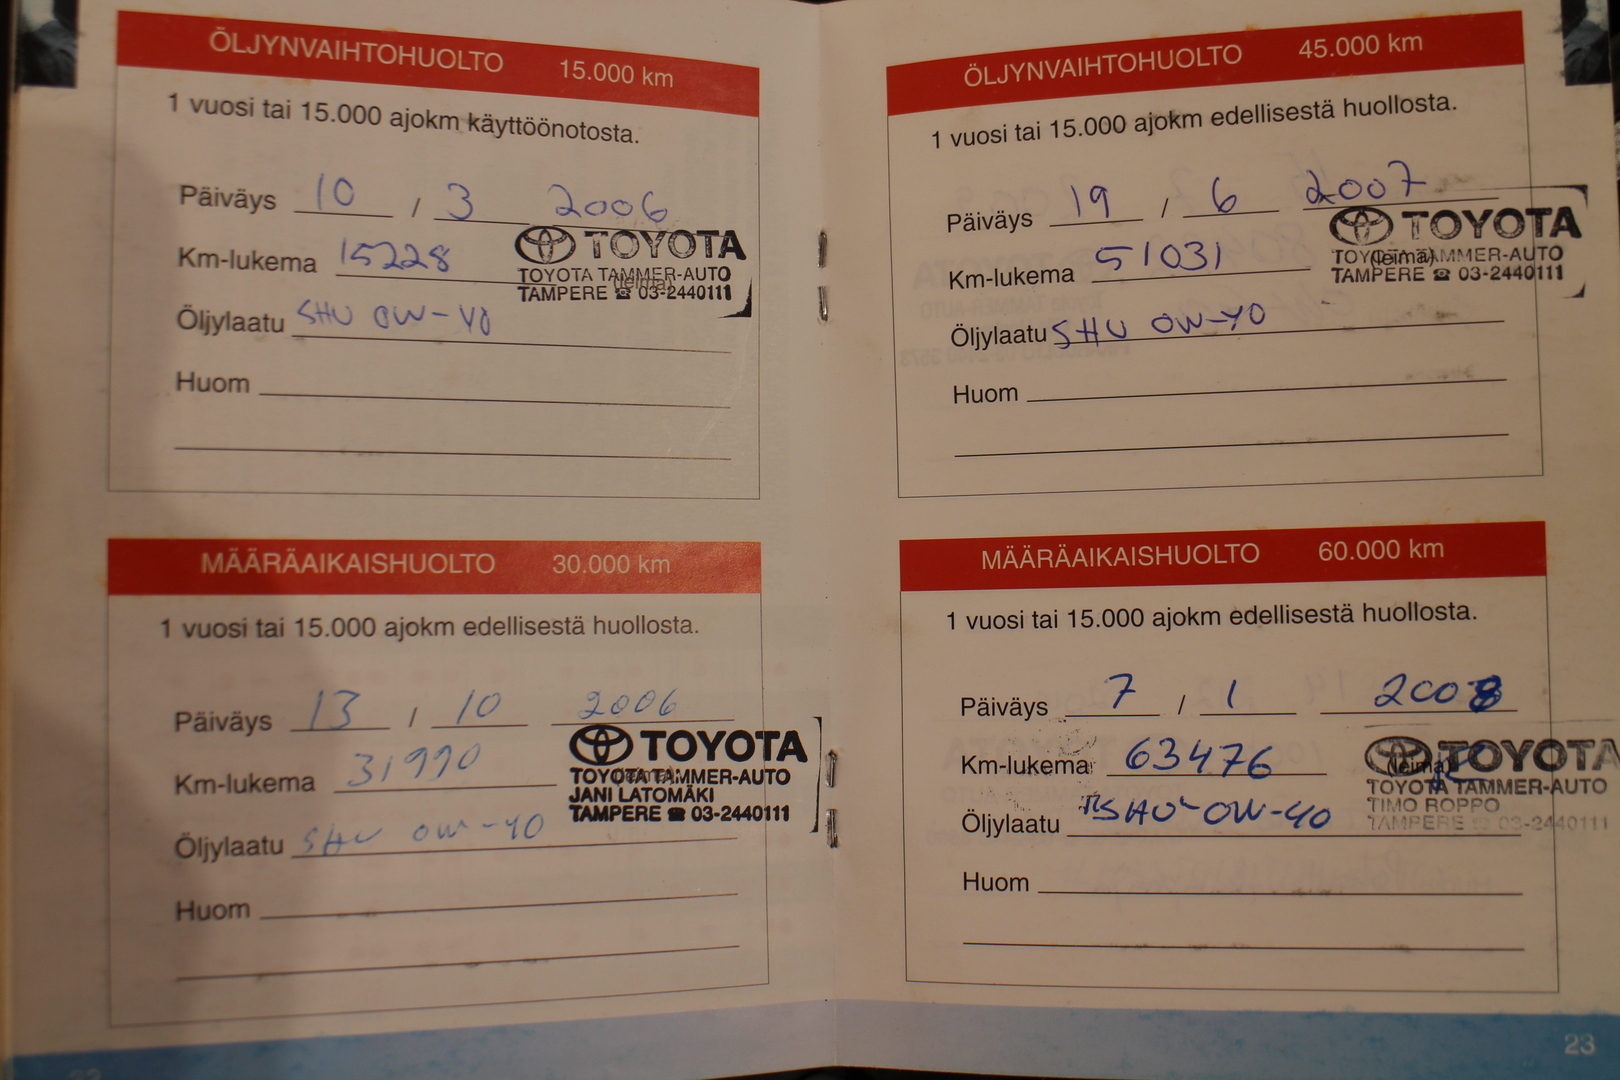 ÖLJYNVAIHTOHUOLTO 15.000 km
1 vuosi tai 15.000 ajokm käyttöönotosta.
Päiväys 10 / 3 2006
Km-lukema 15228
TOYOTA
TOYOTA TAMMER-AUTO
(leima)
TAMPERE ☎ 03-2440111
Öljylaatu SHU 0W-40
Huom
MÄÄRÄAIKAISHUOLTO 30.000 km
1 vuosi tai 15.000 ajokm edellisestä huollosta.
Päiväys 13 / 10 2006
Km-lukema 31990
TOYOTA
TOYOTA TAMMER-AUTO
(leima)
JANI LATOMÄKI
TAMPERE ☎ 03-2440111
Öljylaatu SHU 0W-40
Huom
ÖLJYNVAIHTOHUOLTO 45.000 km
1 vuosi tai 15.000 ajokm edellisestä huollosta.
Päiväys 19 / 6 2007
Km-lukema 51031
TOYOTA
TOYOTA TAMMER-AUTO
(leima)
TAMPERE ☎ 03-2440111
Öljylaatu SHU 0W-40
Huom
MÄÄRÄAIKAISHUOLTO 60.000 km
1 vuosi tai 15.000 ajokm edellisestä huollosta.
Päiväys 7 / 1 2008
Km-lukema 63476
TOYOTA
(leima)
TOYOTA TAMMER-AUTO
TIMO ROPPO
TAMPERE ☎ 03-2440111
Öljylaatu SHU 0W-40
Huom
23